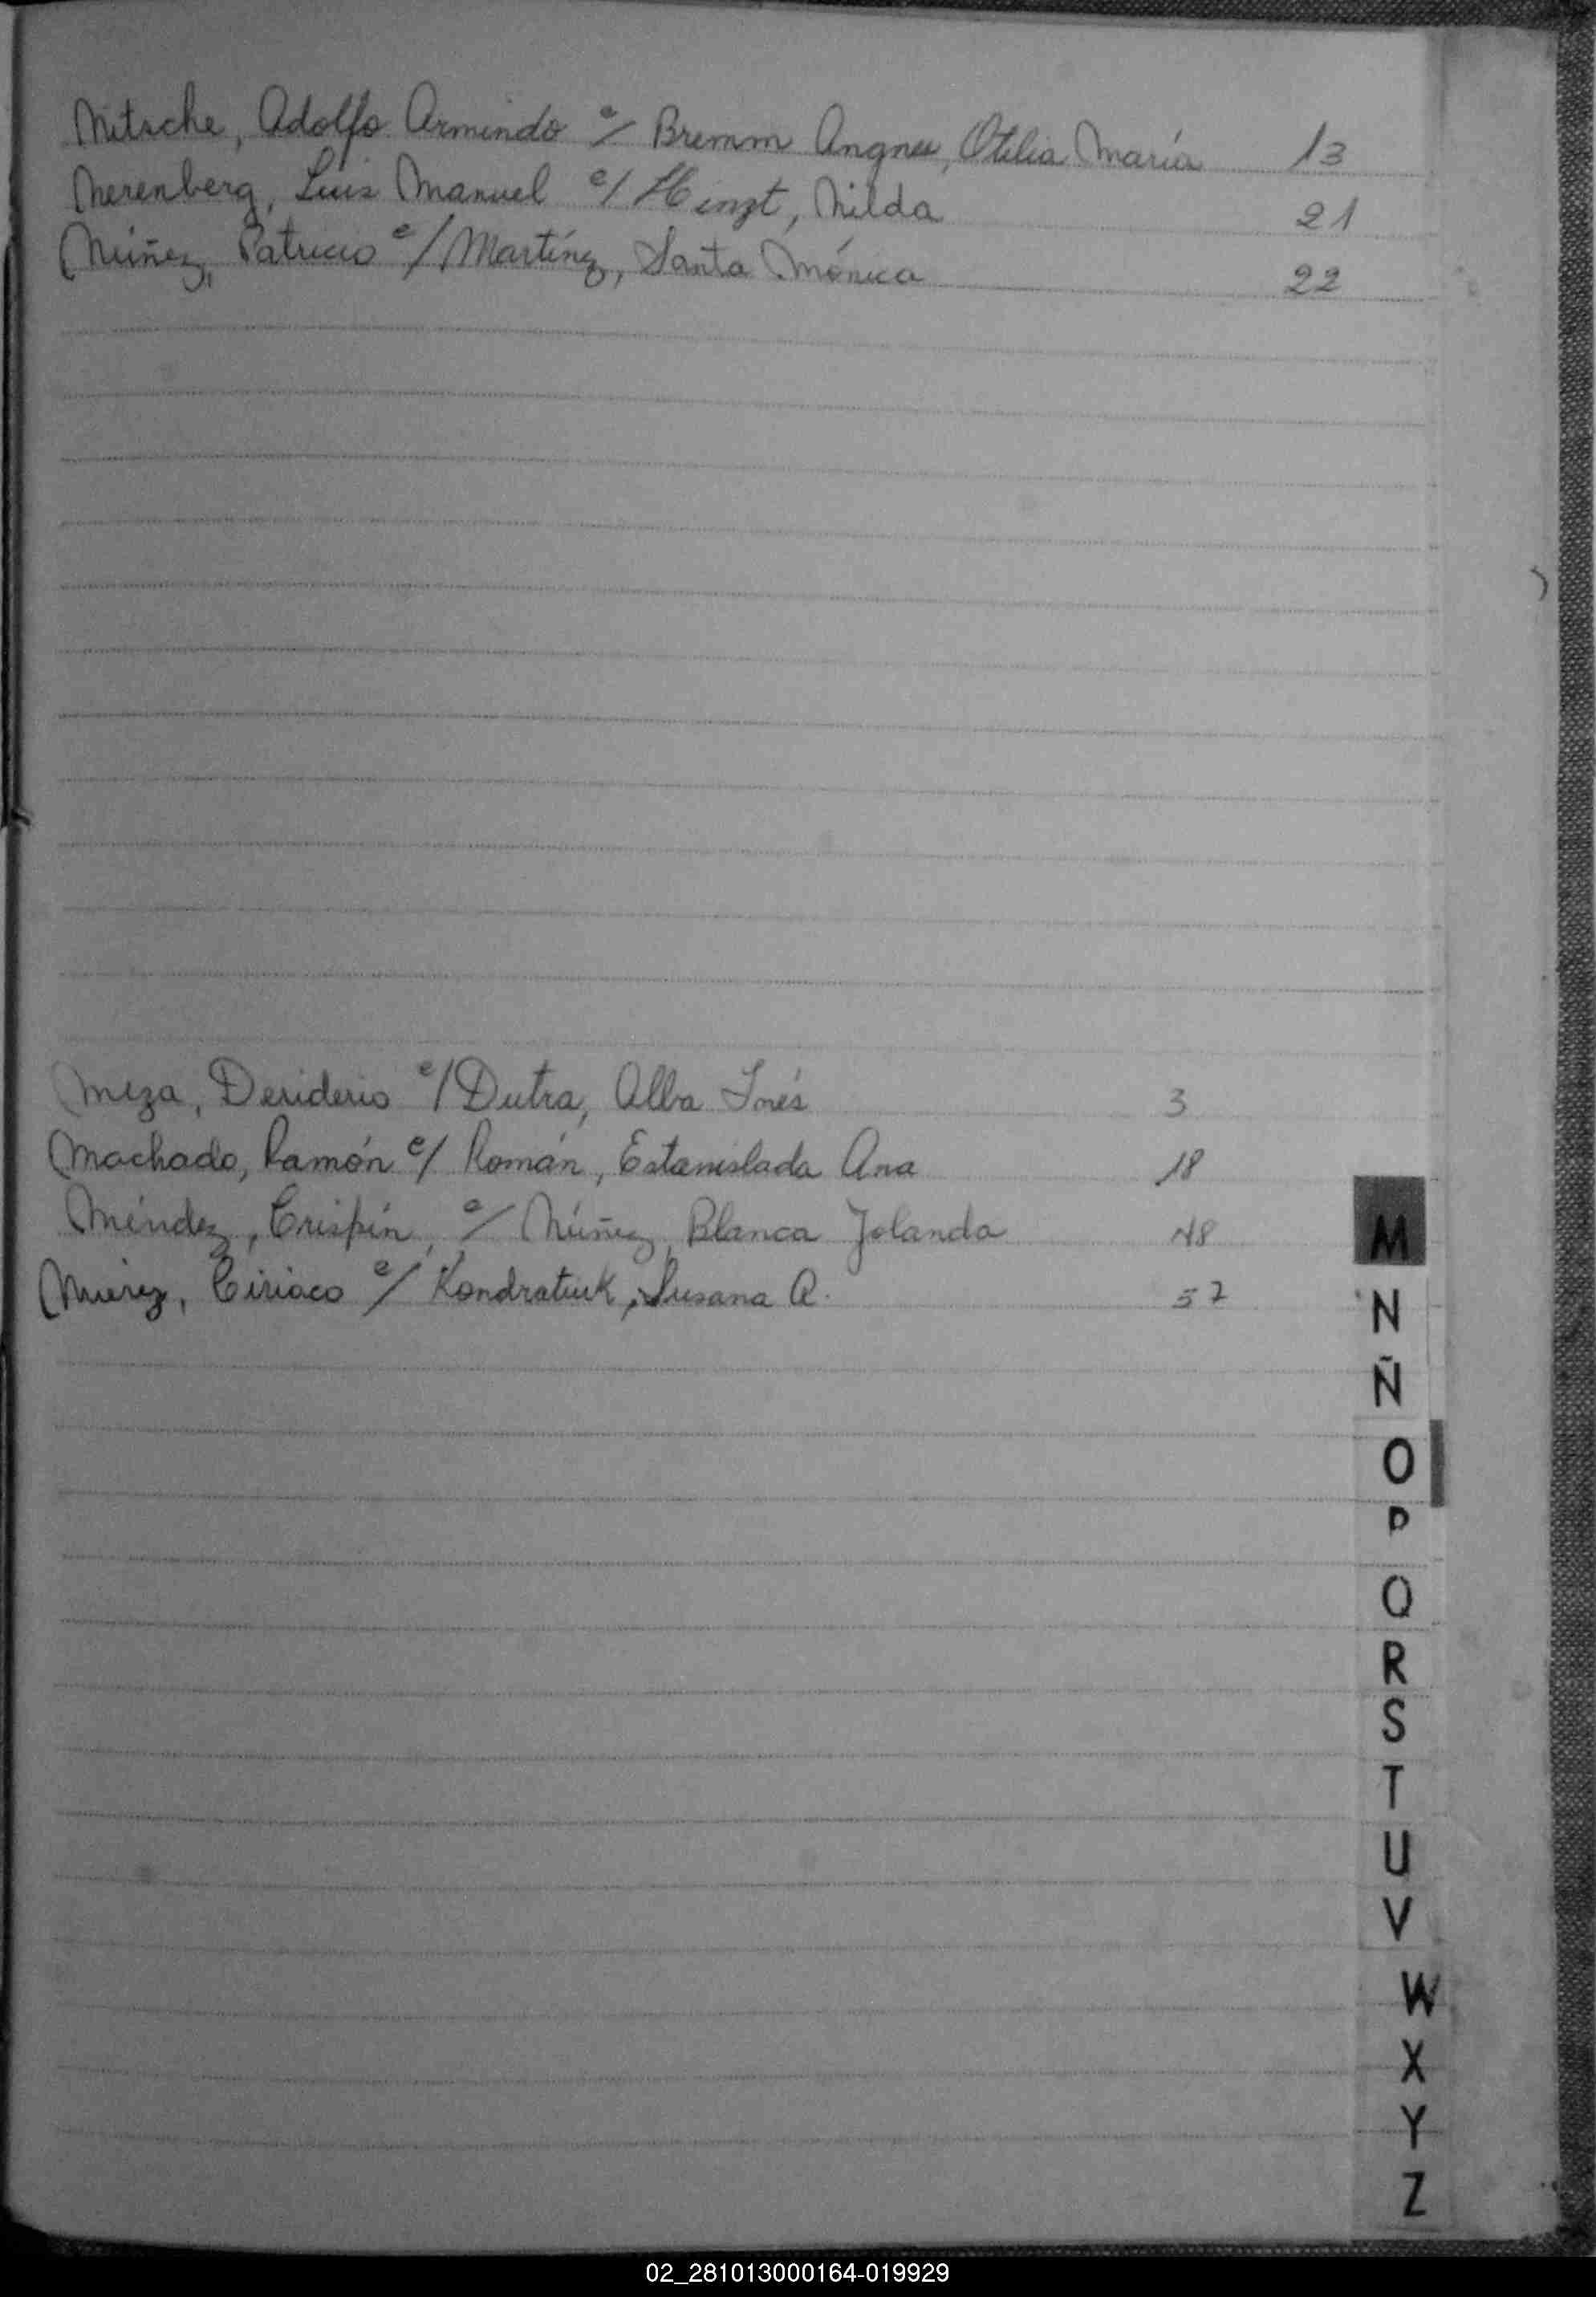 Nitsche, Adolfo Armindo c/ Bremm Angnes, Otilia María 13
Nerenberg, Luis Manuel c/ Hinzt, Nilda 21
Núñez, Patricio c/ Martínz, Santa Mónica 22
Meza, Desiderio c/ Dutra, Alba Inés 3
Machado, Ramón c/ Román, Estanislada Ana 18
Méndez, Crispín, c/ Núñez, Blanca Yolanda 48
Ciriaco c/ Kondratiuk, Susana A. 57
M
N
Ñ
O
P
Q
R
S
T
U
V
W
X
Y
Z
02_281013000164-019929